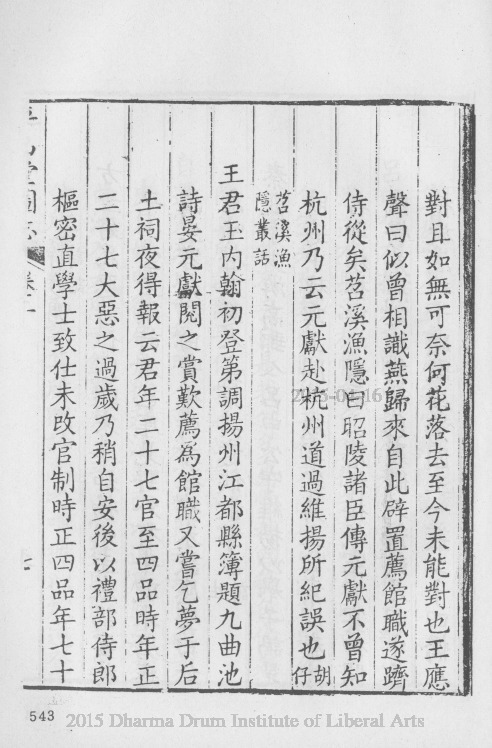 對且如無可奈何花落去至今未能對也王應
聲曰似曾相識燕歸來自此辟置薦館職遂躋
侍從矣苕溪漁隱曰昭陵諸臣傳元獻不曾知
杭州乃云元獻赴杭州道過維揚所紀誤也胡仔
苕溪漁
隱叢話
王君玉内翰初登第調揚州江都縣簿題九曲池
詩晏元獻閱之賞歎薦爲館職又嘗乞夢于后
土祠夜得報云君年二十七官至四品時年正
二十七大惡之過歲乃稍自安後以禮部侍郎
樞密直學士致仕未改官制時正四品年七十
山堂圖志
卷十一
七
543
2015-04-16
2015 Dharma Drum Institute of Liberal Arts